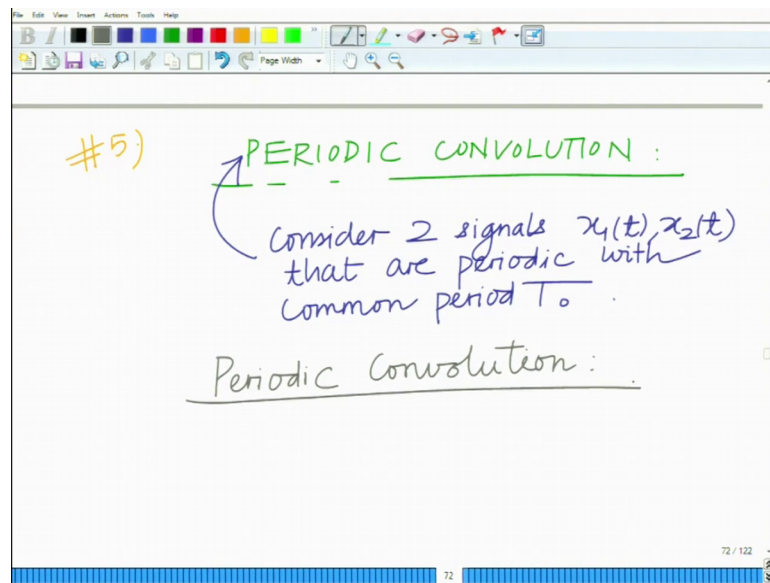 File Edit View Insert Actions Tools Help
B I
Page Width
#5)
PERIODIC CONVOLUTION :
Consider 2 signals x₁(t), x₂(t)
that are periodic with
common period T₀.
Periodic Convolution :
72 / 122
72